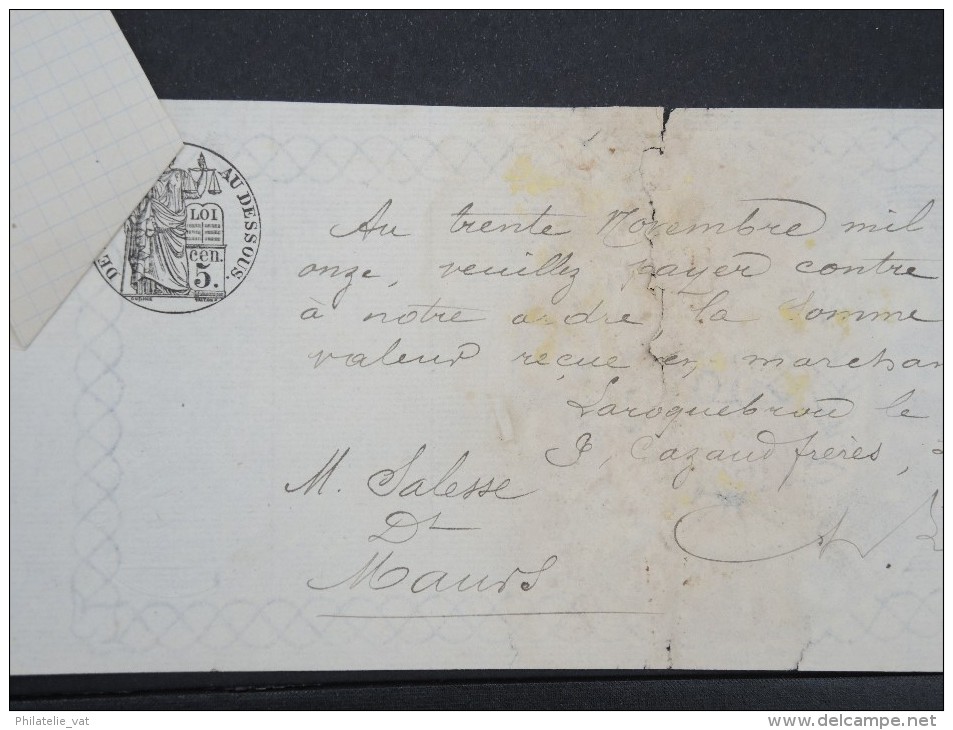 DE AU DESSOUS.
LOI
cen.
5.
Au trente Novembre mil
onze, veuillez payer contre
à notre ordre, la somme
valeur reçue en marchan
Laroquebrou le
Cazaud frères,
M. Salesse
Dt
Maurs
Philatelie_vat
http://www.delcampe.net